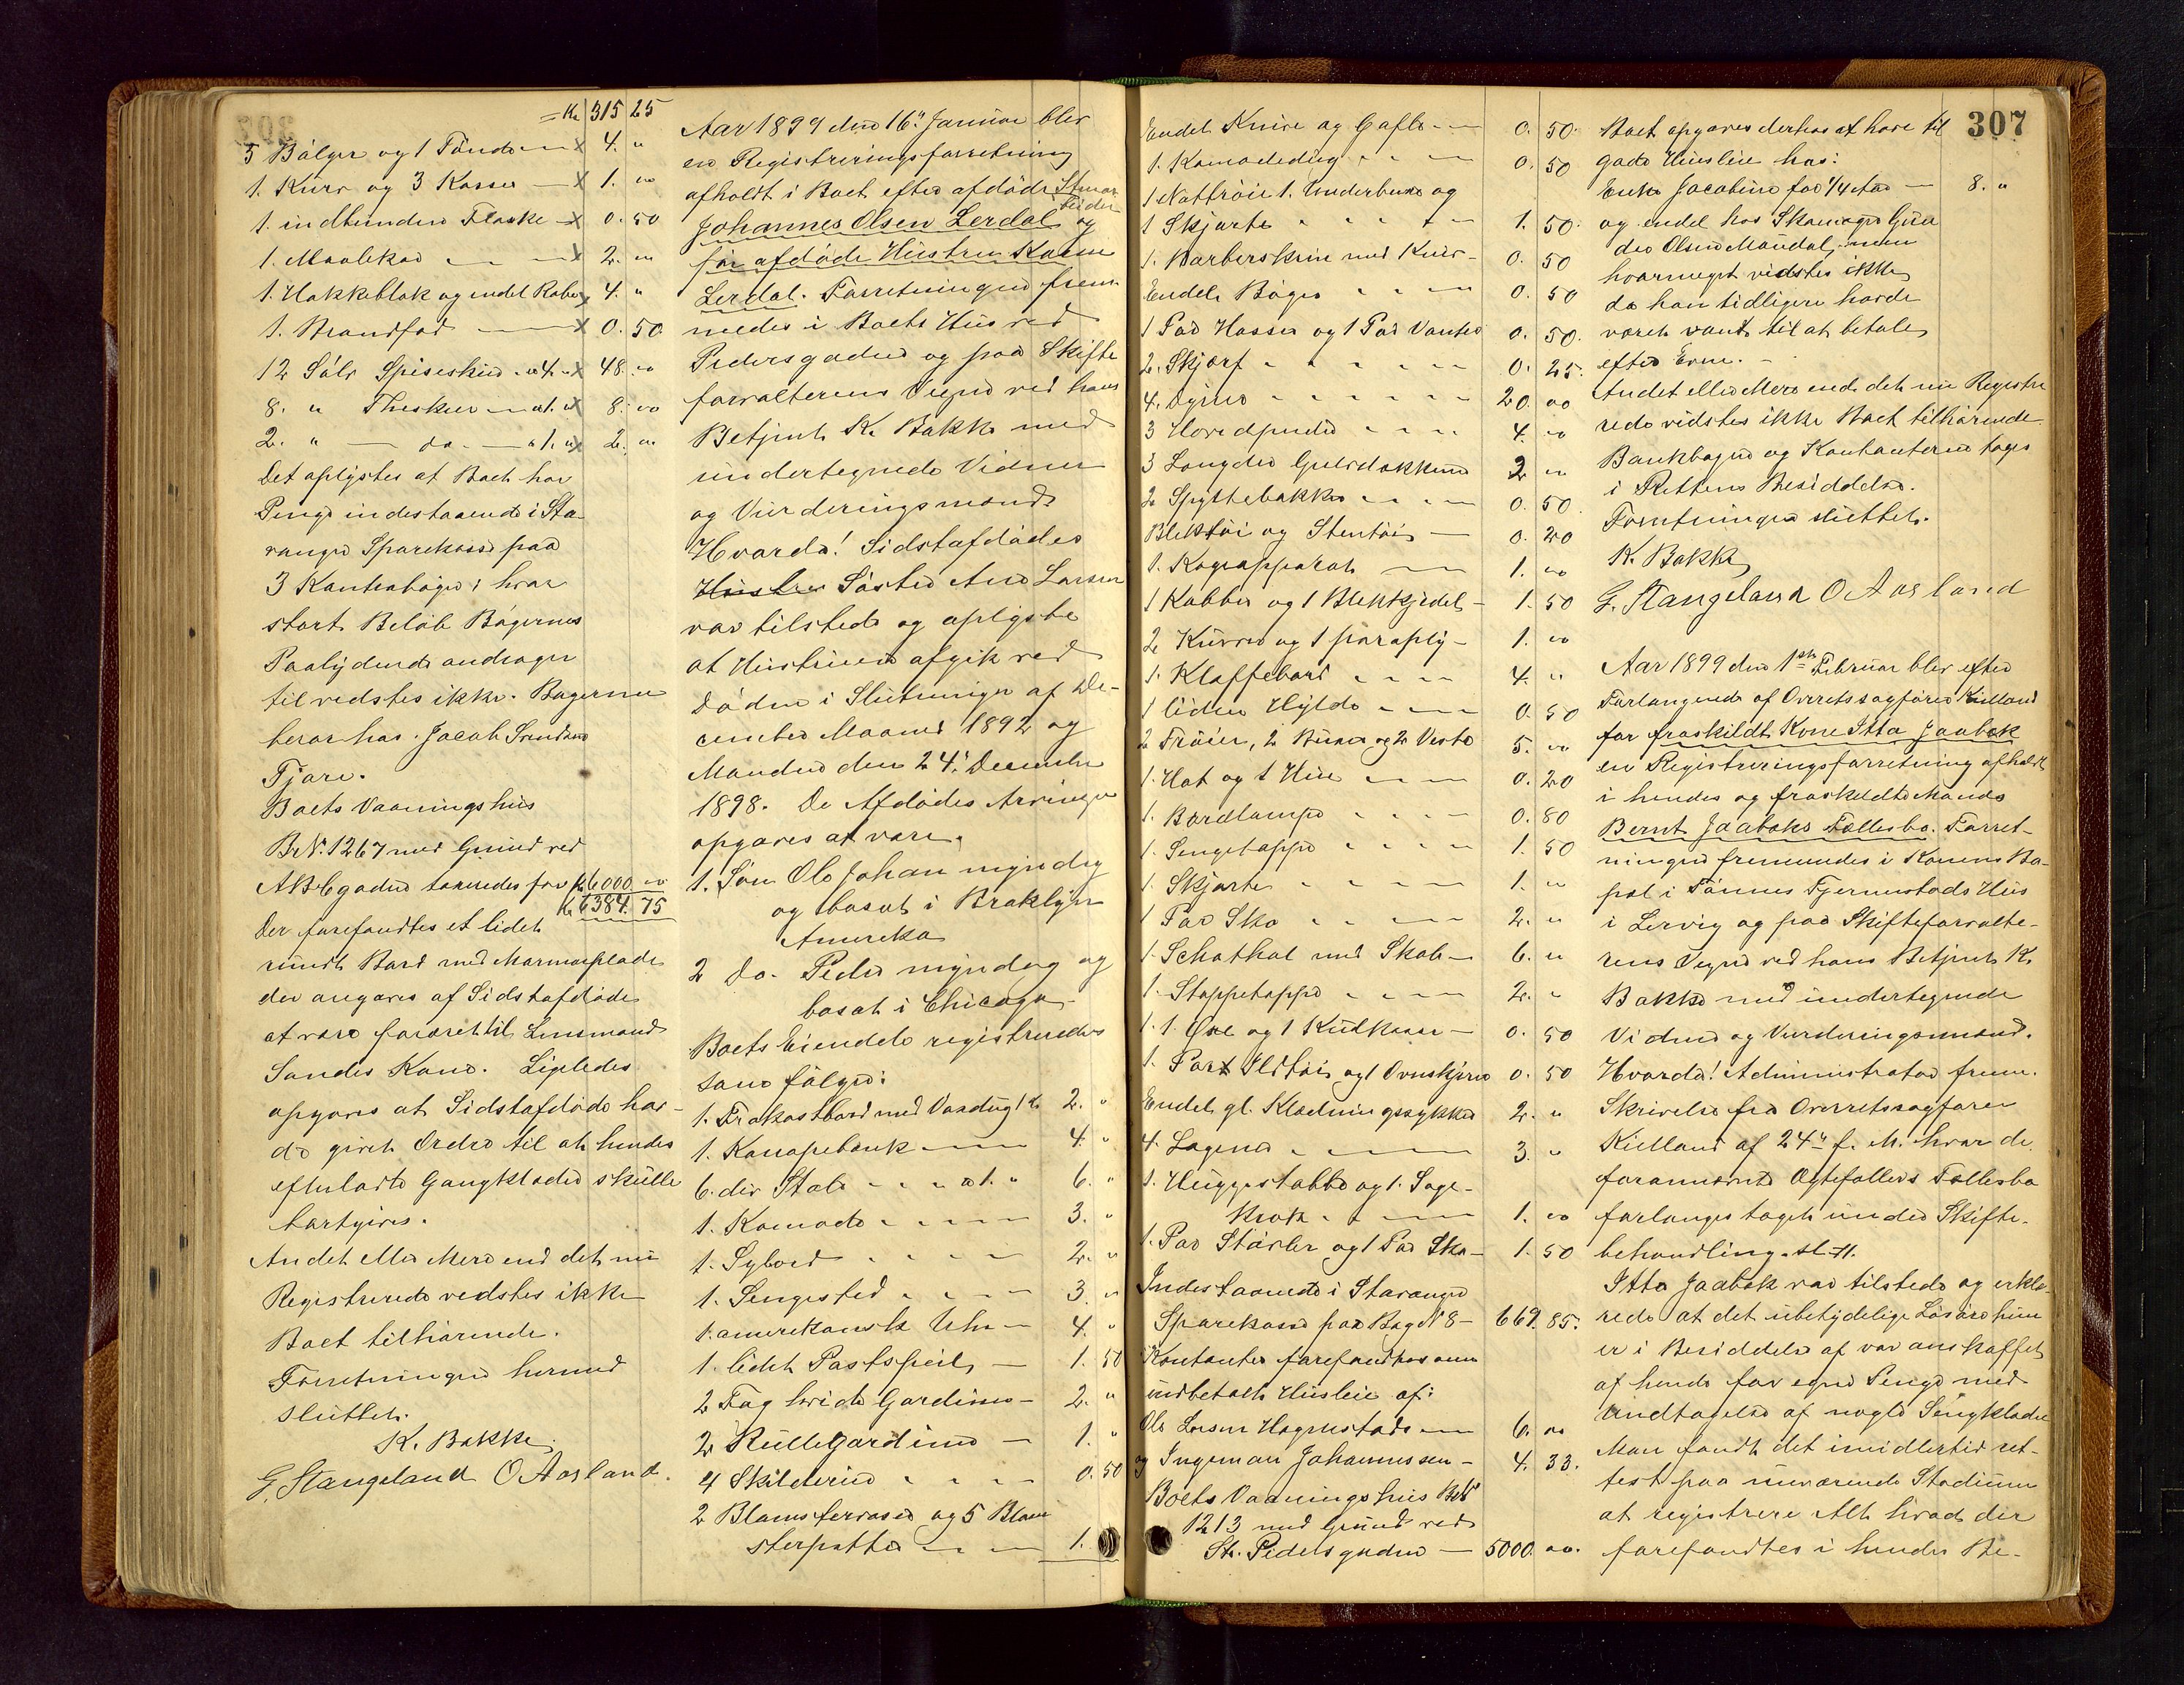 = Kr 315 25
5 Bölger og 1 Tönde — x 4. "
1. Kurv og 3 Kasser — x 1. "
1. indbunden Flaske — x 0. 50
1. Maalekar — x 2. "
1. Hakkeblok og endel Rabe x 4. "
1. Brandfad — x 0. 50
12 Sölv Spiseskeer a 4. " x 48. "
8. " Theskeer — a 1. " x 8. "
2. " — do. — a 1. " x 2. "
Det oplystes at Boet har
Penge indestaaende i Sta-
vanger Sparekasse paa
3 Kontrabøger; hvor
stort Belöb Bögernes
Paalydende andrager
til vidstes ikke. Bøgerne
beror hos Jacob
Fjære.
Boets Vaaningshus
B. No. 1267 med Grund ved
ABCgaden taxeredes for Kr 6000 "
Kr 6384. 75
Der forefandtes et lidet
rundt Bord med Marmorplade
der angaves af Sidstafdöde
at være foræret til Lensmand
Sandes Kone. Ligeledes
opgaves at Sidstafdöde hav-
de givet Ordre til at hendes
efterladte Gangklæder skulle
bortgives.
Andet eller Mere end det nu
Registrerede vidstes ikke
Boet tilhörende.
Forretningen hermed
sluttet.
K. Bakke
G. Stangeland O Aasland.
Aar 1899 den 16de Januar blev
en Registreringsforretning
afholdt i Boet efter afdöde
Johannes Olsen Lerdal og
för afdöde Hustru Karen
Lerdal. Forretningen frem-
medes i Boets Hus ved
Pedersgaden og paa Skifte
forvalterens Vegne ved hans
Betjent K. Bakke med
undertegnede Vidner
og Vurderingsmænd.
Hvorda! Sidstafdödes
Hustru Söster Ane Larsen
var tilstede og oplyste
at Hustruen afgik ved
Döden i Slutningen af De-
cember Maaned 1892 og
Manden den 24de December
1898. De Afdödes Arvinger
opgaves at være.
1. Sön Ole Johan myndig
og bosat i Broklyn
Amerika
2 do. Peder myndig og
bosat i Chicago.
Boets Eiendele registreredes
som fölger:
1. Frokostbord med Voxdug 2. "
1. Kanapebænk — 4. "
6. div Stole — a 1. " 6. "
1. Komode — 3. "
1. Sybord — 2. "
1. Sengested — 3. "
1. amerikansk Uhr — 4. "
1. lidet Postspeil — 1. 50
2 Fag hvide Gardiner — 2. "
2 Rullegardiner — 1. "
4 Skilderier — 0. 50
2 Blomstervaser og 5 Blom
sterpotter — 1.
Endel Knive og Gafler — 0. 50.
1. Kamadedug — 0. 50
1 Nattröie 1. Underbuxe og
1 Skjorte — 1. 50.
1. Barberskrin med Kniv — 0. 50
Endel Böger — 0. 50
1 Par Hoser og 1 Par Vanter 0. 50.
2. Skjærf — 0. 25.
4. Dyner — 20. 00
3 Hovedpuder — 4. "
3 Længder Gulvdækken 2 "
2 Spyttebakker — 0. 50.
Bliktöi og Stentöi — 0. 20
1. Kogeapparat — 1. "
1 Kobber og 1 Blikkjedel — 1. 50
2 Kurve og 1 paraply — 1. "
1. Klaffebord — 4. "
1 liden Hylde — 0. 50
2 Tröier, 2 Buxer og 2 Veste 5. "
1. Hat og 1 Hue — 0. 20
1. Bordlampe — 0. 80
1. Sengetæppe — 1. 50
1. Skjorte — 1. "
1 Par Sko — 2. "
1. Schathol med Skab — 6. "
1. Stoppetæppe — 2. "
1. 1 Øxe og 1 Kulkasse — 0. 50
1. Part Ildtöi og 1 Ovnskjærm 0. 50
Endel gl. Klædningsstykker 2. "
4. Lagener — 3. "
1. Huggestabbe og 1. Sage-
krak — 1. "
1. Par Stövler og 1 Par Sko — 1. 50
Indestaaende i Stavanger
Sparekasse paa Bog No 8 — 669. 85.
Kontanter forefandtes som
indbetalt Husleie af:
Ole Larsen Hognestad — 6. 00
og Ingeman Johannessen — 4. 33.
Boets Vaaningshus B. No
1213 med Grund ved
St. Pedersgaden — 5000. 00.
307
Boet opgaves derhos at have til
gode Husleie hos:
Enke Jacobine for 1/4 Aar — 8. "
og endel hos Skomager Gun
der Olsen Mandal, men
hvormeget vidstes ikke
da han tidligere havde
været vant til at betale
efter Evne. —
Andet eller Mere end det nu Registre
rede vidstes ikke Boet tilhörende.
Bankbogen og Kontanterne toges
i Rettens Besiddelse.
Forretningen sluttet.
K. Bakke
G. Stangeland O Aasland
Aar 1899 den 1ste Februar blev efter
Forlangende af Overretssagförer Kielland
for fraskildt Kone Itta Jaabæk
en Registreringsforretning afholdt
i hendes og fraskildte Mands
Bernt Jaabæks Fællesbo. Forret-
ningen fremmedes i Konens Bo-
pæl i Tönnes Tjermestads Hus
i Lervig og paa Skifteforvalte-
rens Vegne ved hans Betjent K.
Bakke med undertegnede
Vidner og Vurderingsmænd.
Hvorda! Administrator frem.
Skrivelse fra Overretssagförer
Kielland af 24de f. M. hvor de
forannævnte Ægtefællers Fællesbo
forlanges taget under Skifte-
behandling.
Itta Jaabæk var tilstede og erklæ-
rede at det ubetydelige Lösöre hun
er i Besiddelse af var anskaffet
af hende for egne Penge med
Undtagelse af nogle Sengklæder
Man fandt det imidlertid ret-
test paa nuværende Stadium
at registrere Alt hvad der
forefandtes i hendes Be-